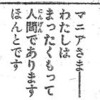 マニアさま━━
わたしは
まったくもって
人間であります
ほんとです